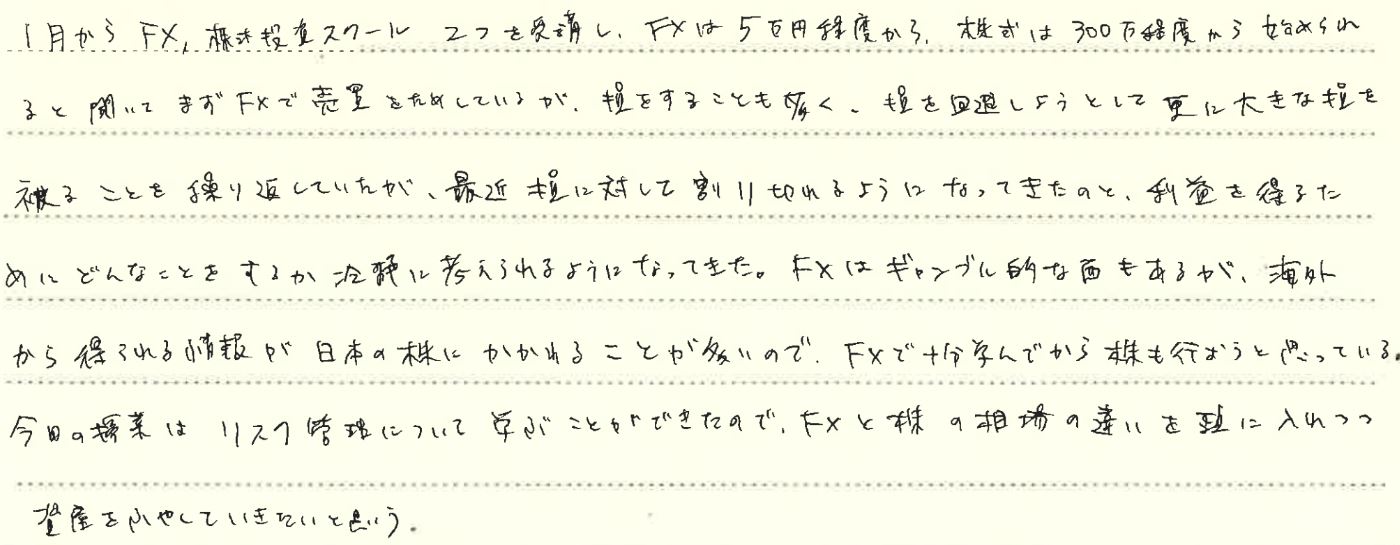 1月から FX, 株式投資スクール 2つを受講し、FXは5万円程度から、株式は300万程度から始められ
ると聞いてまずFXで売買をためしているが、損をすることも多く、損を回避しようとして更に大きな損を
被ることを繰り返していたが、最近損に対して割り切れるようになってきたのと、利益を得るた
めにどんなことをするか冷静に考えられるようになってきた。FXはギャンブル的な面もあるが、海外
から得られる情報が日本の株にかかわることが多いので、FXで十分学んでから株も行おうと思っている。
今日の授業はリスク管理について学ぶことができたので、FXと株の相場の違いを頭に入れつつ
資産をふやしていきたいと思う。